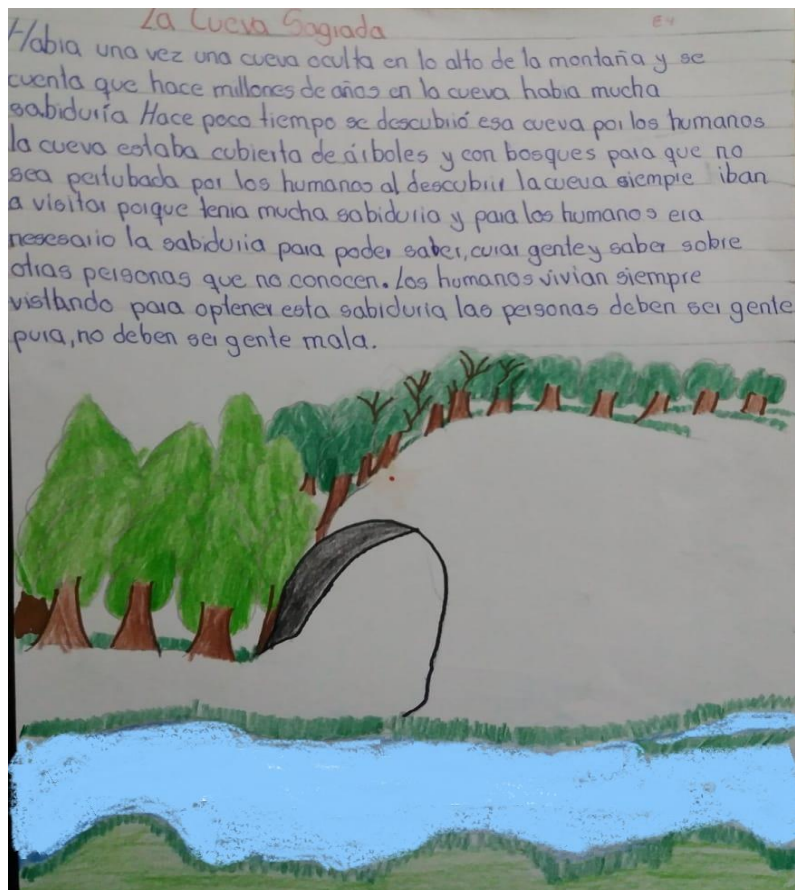 La Cueva Sagrada
E4
Habia una vez una cueva oculta en lo alto de la montaña y se
cuenta que hace millones de años en la cueva habia mucha
sabiduría Hace poco tiempo se descubrió esa cueva por los humanos
la cueva estaba cubierta de árboles y con bosques para que no
sea pertubada por los humanos al descubrir la cueva siempre iban
a visitar porque tenia mucha sabiduria y para los humanos era
nesesario la sabiduria para poder saber, curar gente y saber sobre
otras personas que no conocen. Los humanos vivian siempre
vistando para optener esta sabiduría las personas deben ser gente
pura, no deben ser gente mala.